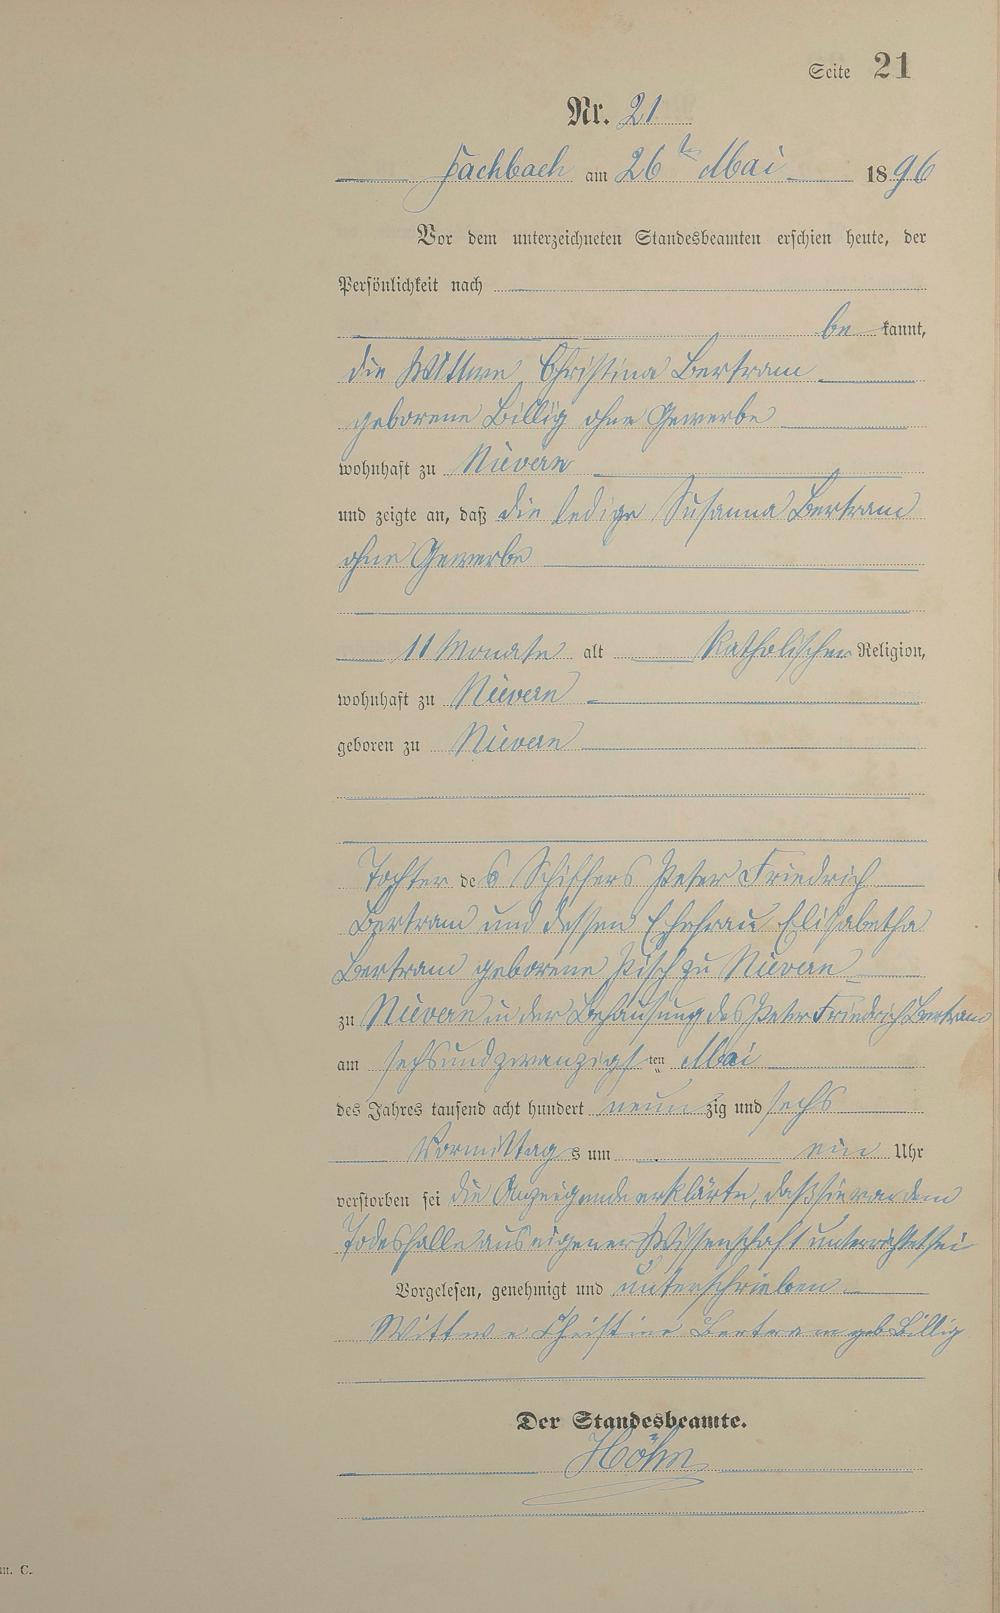 Seite 21
Nr. 21
Fachbach am 26ten Mai 1896
Vor dem unterzeichneten Standesbeamten erschien heute, der
Persönlichkeit nach
be kannt,
die Wittwe Christina Bertram
geborene Billig ohne Gewerbe
wohnhaft zu Nievern
und zeigte an, daß die ledige Susanna Bertram
ohne Gewerbe
11 Monate alt Katholischer Religion,
wohnhaft zu Nievern
geboren zu Nievern
Tochter des Schiffers Peter Friedrich
Bertram und dessen Ehefrau Elisabetha
Bertram geborene Pisch zu Nievern
zu Nievern in der Behausung des Peter Friedrich Bertram
am sechsundzwanzigsten Mai
des Jahres tausend acht hundert neunzig und sechs
Vormittags um ein Uhr
verstorben sei die Anzeigende erklärte, daß sie von dem
Todesfalle aus eigener Wissenschaft unterrichtet sei
Vorgelesen, genehmigt und unterschrieben
Wittwe Christine Bertram geb Billig
Der Standesbeamte.
Höhn
m. C.